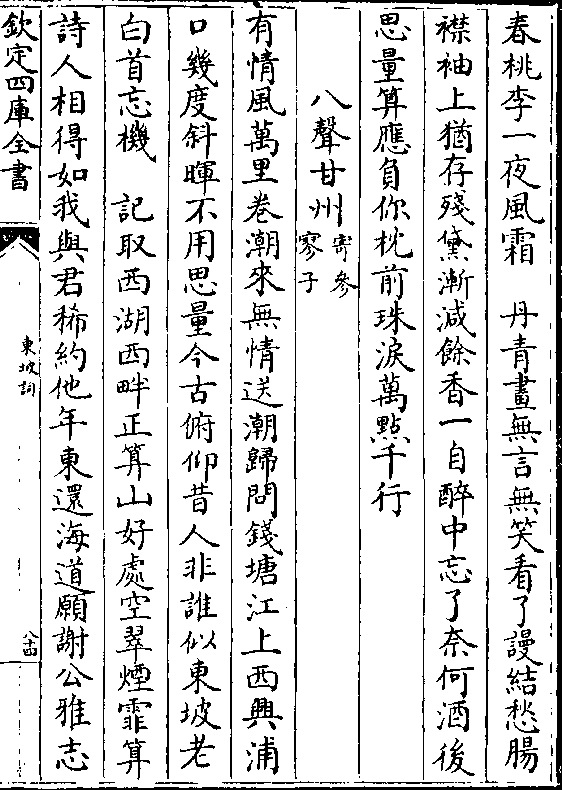 春桃李一夜風霜　丹青畫無言無笑看了謾結愁腸
襟袖上猶存殘黛漸減餘香一自醉中忘了奈何酒後
思量算應負你枕前珠淚萬點千行
八聲甘州寄參寥子
有情風萬里卷潮來無情送潮歸問錢塘江上西興浦
口幾度斜暉不用思量今古俯仰昔人非誰似東坡老
白首忘機　記取西湖西畔正算山好處空翠煙霏算
詩人相得如我與君稀約他年東還海道願謝公雅志
欽定四庫全書
東坡詞
八十四